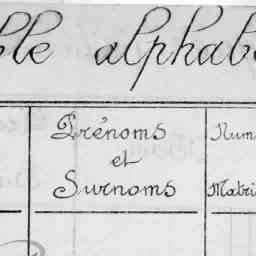 ble alphab
Prénoms Num
et
Surnoms Matri